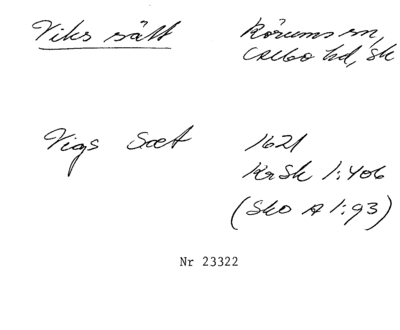 Viks sätt
Rörums sn,
Albo hd, Sk
Vigs Sæt
1621
KrSk 1:406
(Sko A 1:93)
Nr 23322